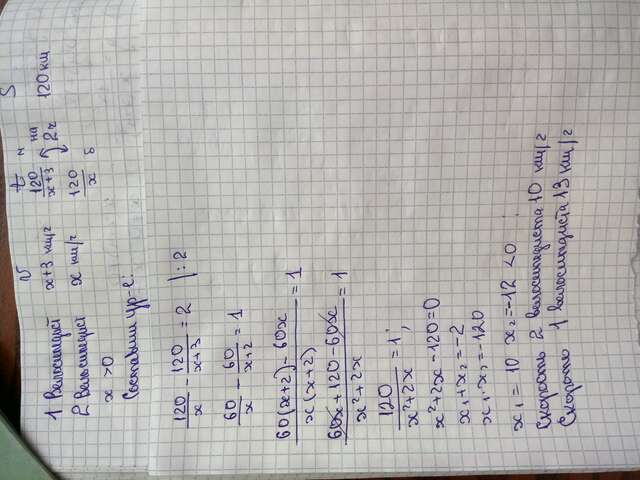 v t S
1 Велосипедист x+3 км/ч 120/x+3 м на 120 км
2 Велосипедист x км/ч 120/x б 2ч
x >0
Составим ур-е:
120/x - 120/x+3 = 2 | :2
60/x - 60/x+2 = 1
60(x+2) - 60x / x(x+2) = 1
60x + 120 - 60x / x²+2x = 1
120 / x²+2x = 1;
x²+2x-120=0
x₁+x₂=-2
x₁·x₂=-120
x₁ = 10 x₂=-12 <0
Скорость 2 велосипедиста 10 км/ч
Скорость 1 велосипедиста 13 км/ч